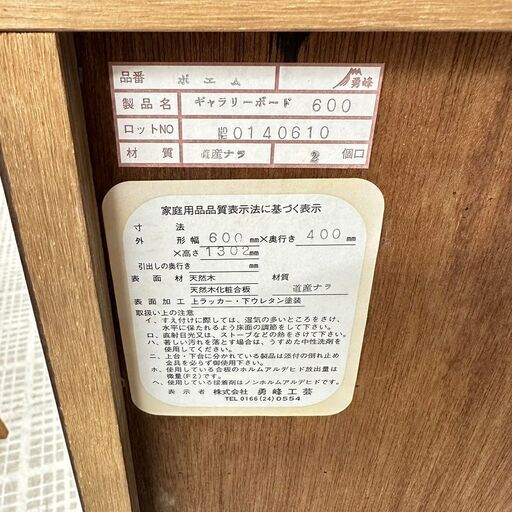 品番 ポエム 勇峰
製品名 ギャラリーボード 600
ロットNO № 0140610
材質 道産ナラ 2 個口
家庭用品品質表示法に基づく表示
寸法
外形幅 600 mm ×奥行き 400 mm
×高さ 1302 mm
引出しの奥行き mm
表面材 天然木 材質
天然木化粧合板 道産ナラ
表面加工 上ラッカー・下ウレタン塗装
取扱い上の注意
イ、すえ付けに際しては、湿気の多いところをさけ、
水平に保たれるよう床面の調節をして下さい。
ロ、直射日光又は、ストーブなどの熱をさけて下さい。
ハ、著しい汚れを落とす場合は、うすめた中性洗剤を
使用してください。
ニ、上台・下台に分かれている製品は添付の倒れ止め
金具を必らず御使用下さい。
ホ、使用している合板のホルムアルデヒド放出量は
微量(F2)です。
ヘ、使用している接着剤はノンホルムアルデヒドです。
表示者 株式会社 勇峰工芸
TEL 0166(24)0554